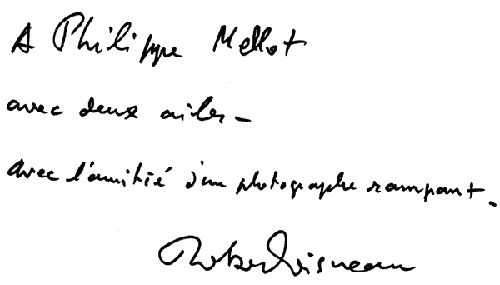 A Philippe Mellot
avec deux ailes –
avec l'amitié d'un photographe rampant.
Robert Doisneau